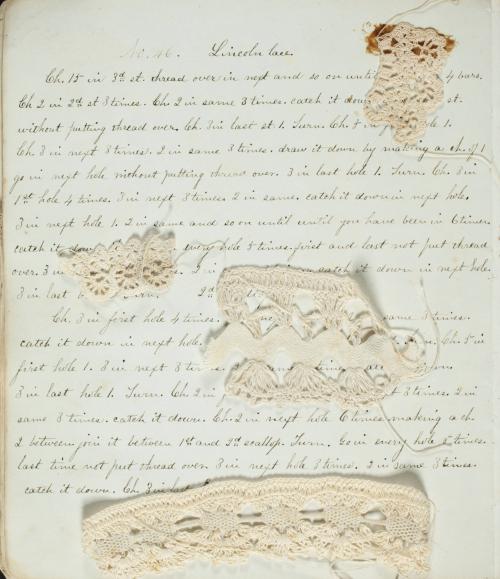 No. 46. Lincoln lace.
Ch. 15 in 3d st. thread over in next and so on until 4 bars.
Ch 2 in 2d st 3 times. Ch. 2 in same 3 times. catch it down st.
without putting thread over. Ch. 3 in last st 1. Turn. Ch. 1.
Ch. 3 in next 3 times. 2 in same 3 times. draw it down by making a ch. of 1
go in next hole without putting thread over. 3 in last hole 1. Turn. Ch. 3 in
1st hole 4 times. 3 in next 3 times. 2 in same. catch it down in next hole.
3 in next hole 1. 2 in same and so on until until you have been in 6 times
catch it every hole 5 times. first and last not put thread
over. 3 in catch it down in next hole.
3 in last
Ch. 3 in first hole 4 times. same 3 times.
catch it down in next hole. Ch. 5 in
first hole 1. 3 in next 3
3 in last hole 1. Turn. Ch. 2 in 3 times. 2 in
same 3 times. catch it down. Ch. 2 in next hole 6 times making a ch.
2 between join it between 1st and 2d scallop. Turn. Go in every hole 5 times.
last time not put thread over. 3 in next hole 3 times. 2 in same 3 times.
catch it down. Ch. 3 in